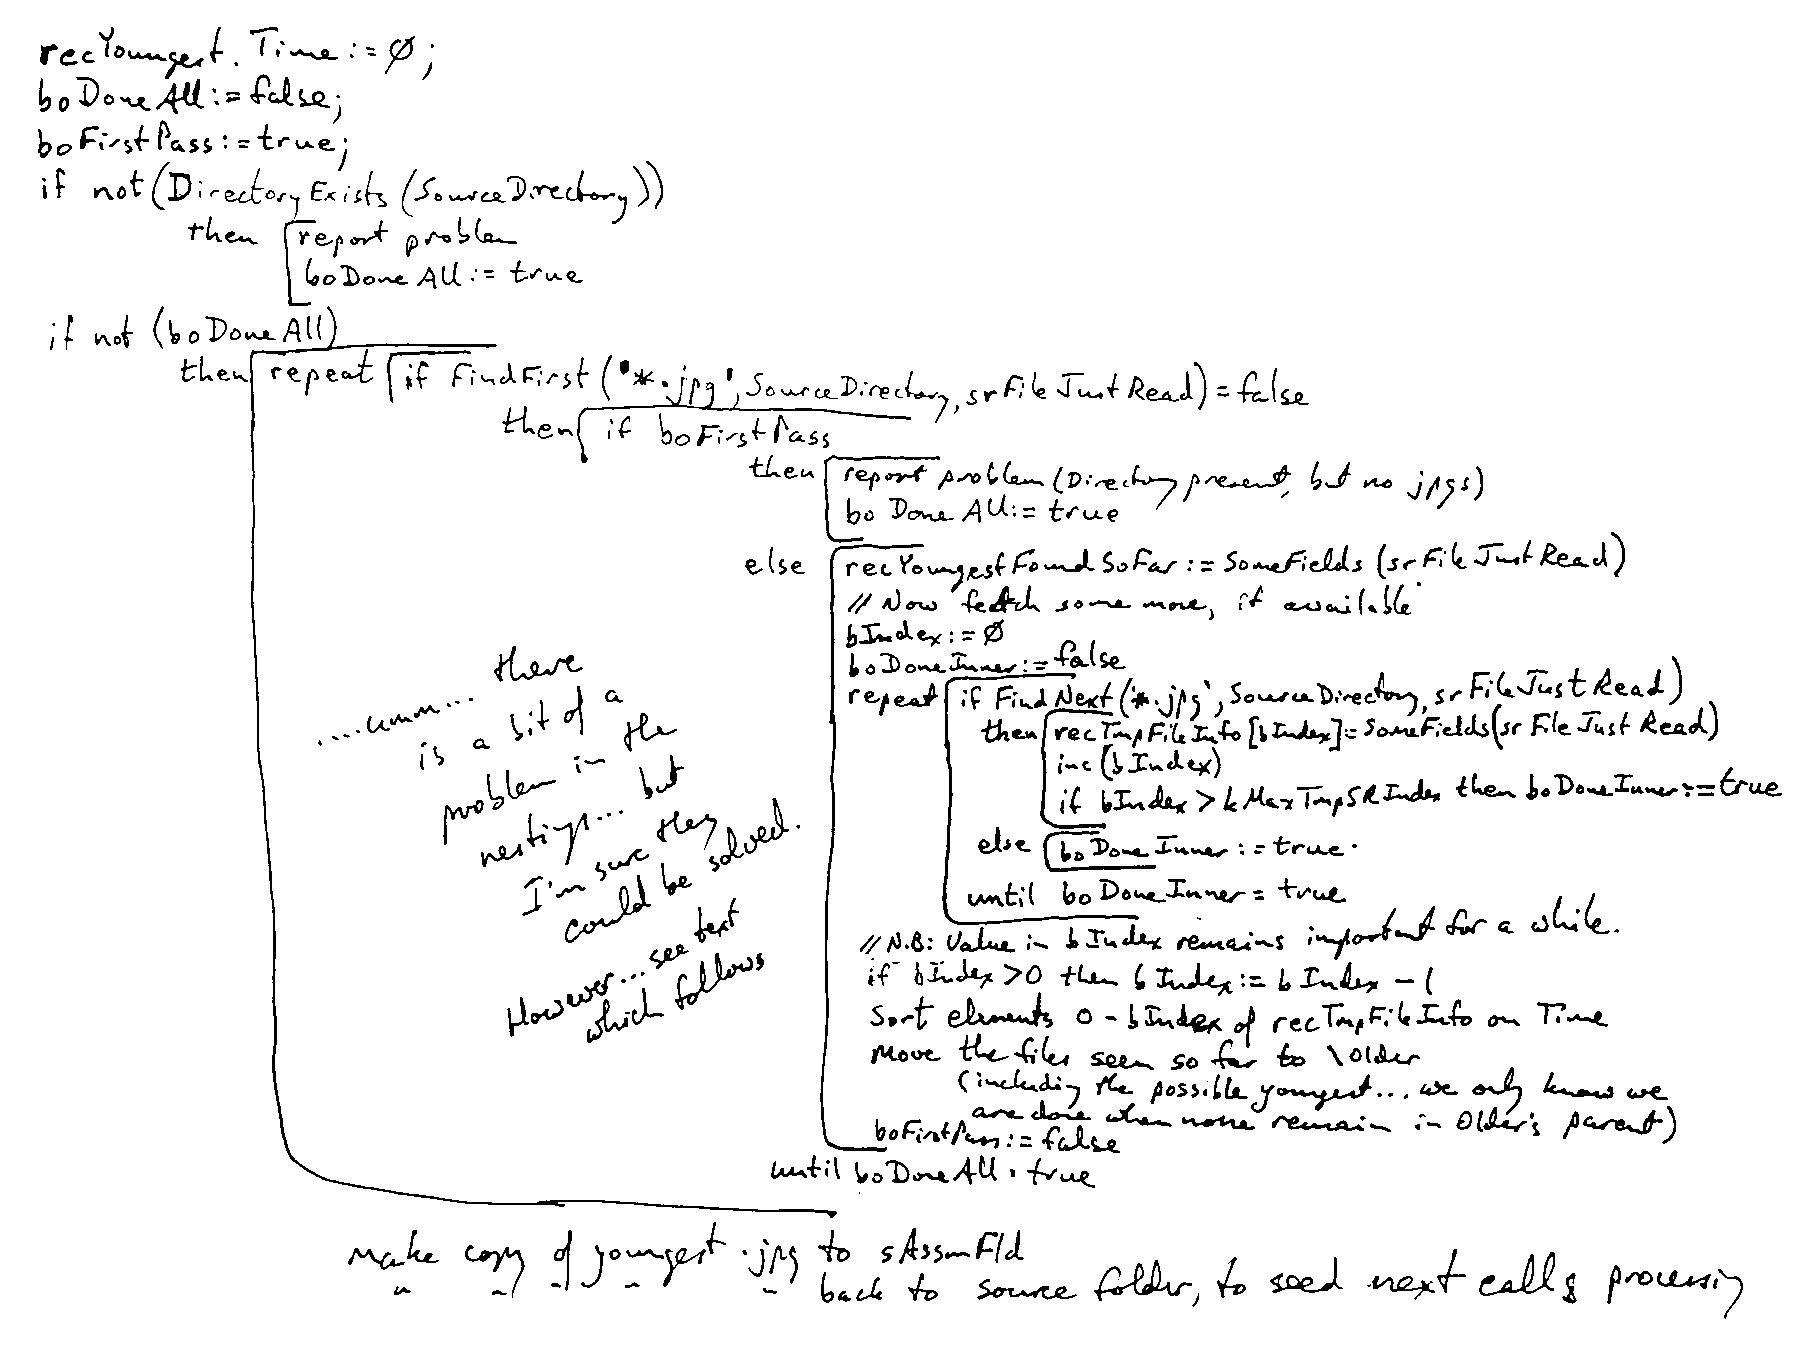 recYoungest.Time:=Ø;
boDoneAll:=false;
boFirstPass:=true;
if not(DirectoryExists(SourceDirectory))
then report problem
boDoneAll:=true
if not (boDoneAll)
then repeat if FindFirst('*.jpg',SourceDirectory,srFileJustRead)=false
then if boFirstPass
then report problem (Directory present, but no jpgs)
boDoneAll:=true
else recYoungestFoundSoFar:=SomeFields(srFileJustRead)
// Now fetch some more, if available
bIndex:=Ø
boDoneInner:=false
repeat if FindNext('*.jpg',SourceDirectory,srFileJustRead)
then recTmpFileInfo[bIndex]=SomeFields(srFileJustRead)
inc(bIndex)
if bIndex>kMaxTmpSRIndex then boDoneInner:=true
else boDoneInner:=true.
until boDoneInner=true
// N.B: Value in bIndex remains important for a while.
if bIndex>0 then bIndex:=bIndex-1
Sort elements 0-bIndex of recTmpFileInfo on Time
Move the files seen so far to \Older
(including the possible youngest... we only know we
are done when none remain in Older's parent)
boFirstPass:=false
until boDoneAll=true
....umm... there
is a bit of a
problem in the
nestings... but
I'm sure they
could be solved.
However...see text
which follows
Make copy of youngest .jpg to sAssmFld
" " " " " back to source folder, to seed next calls processing